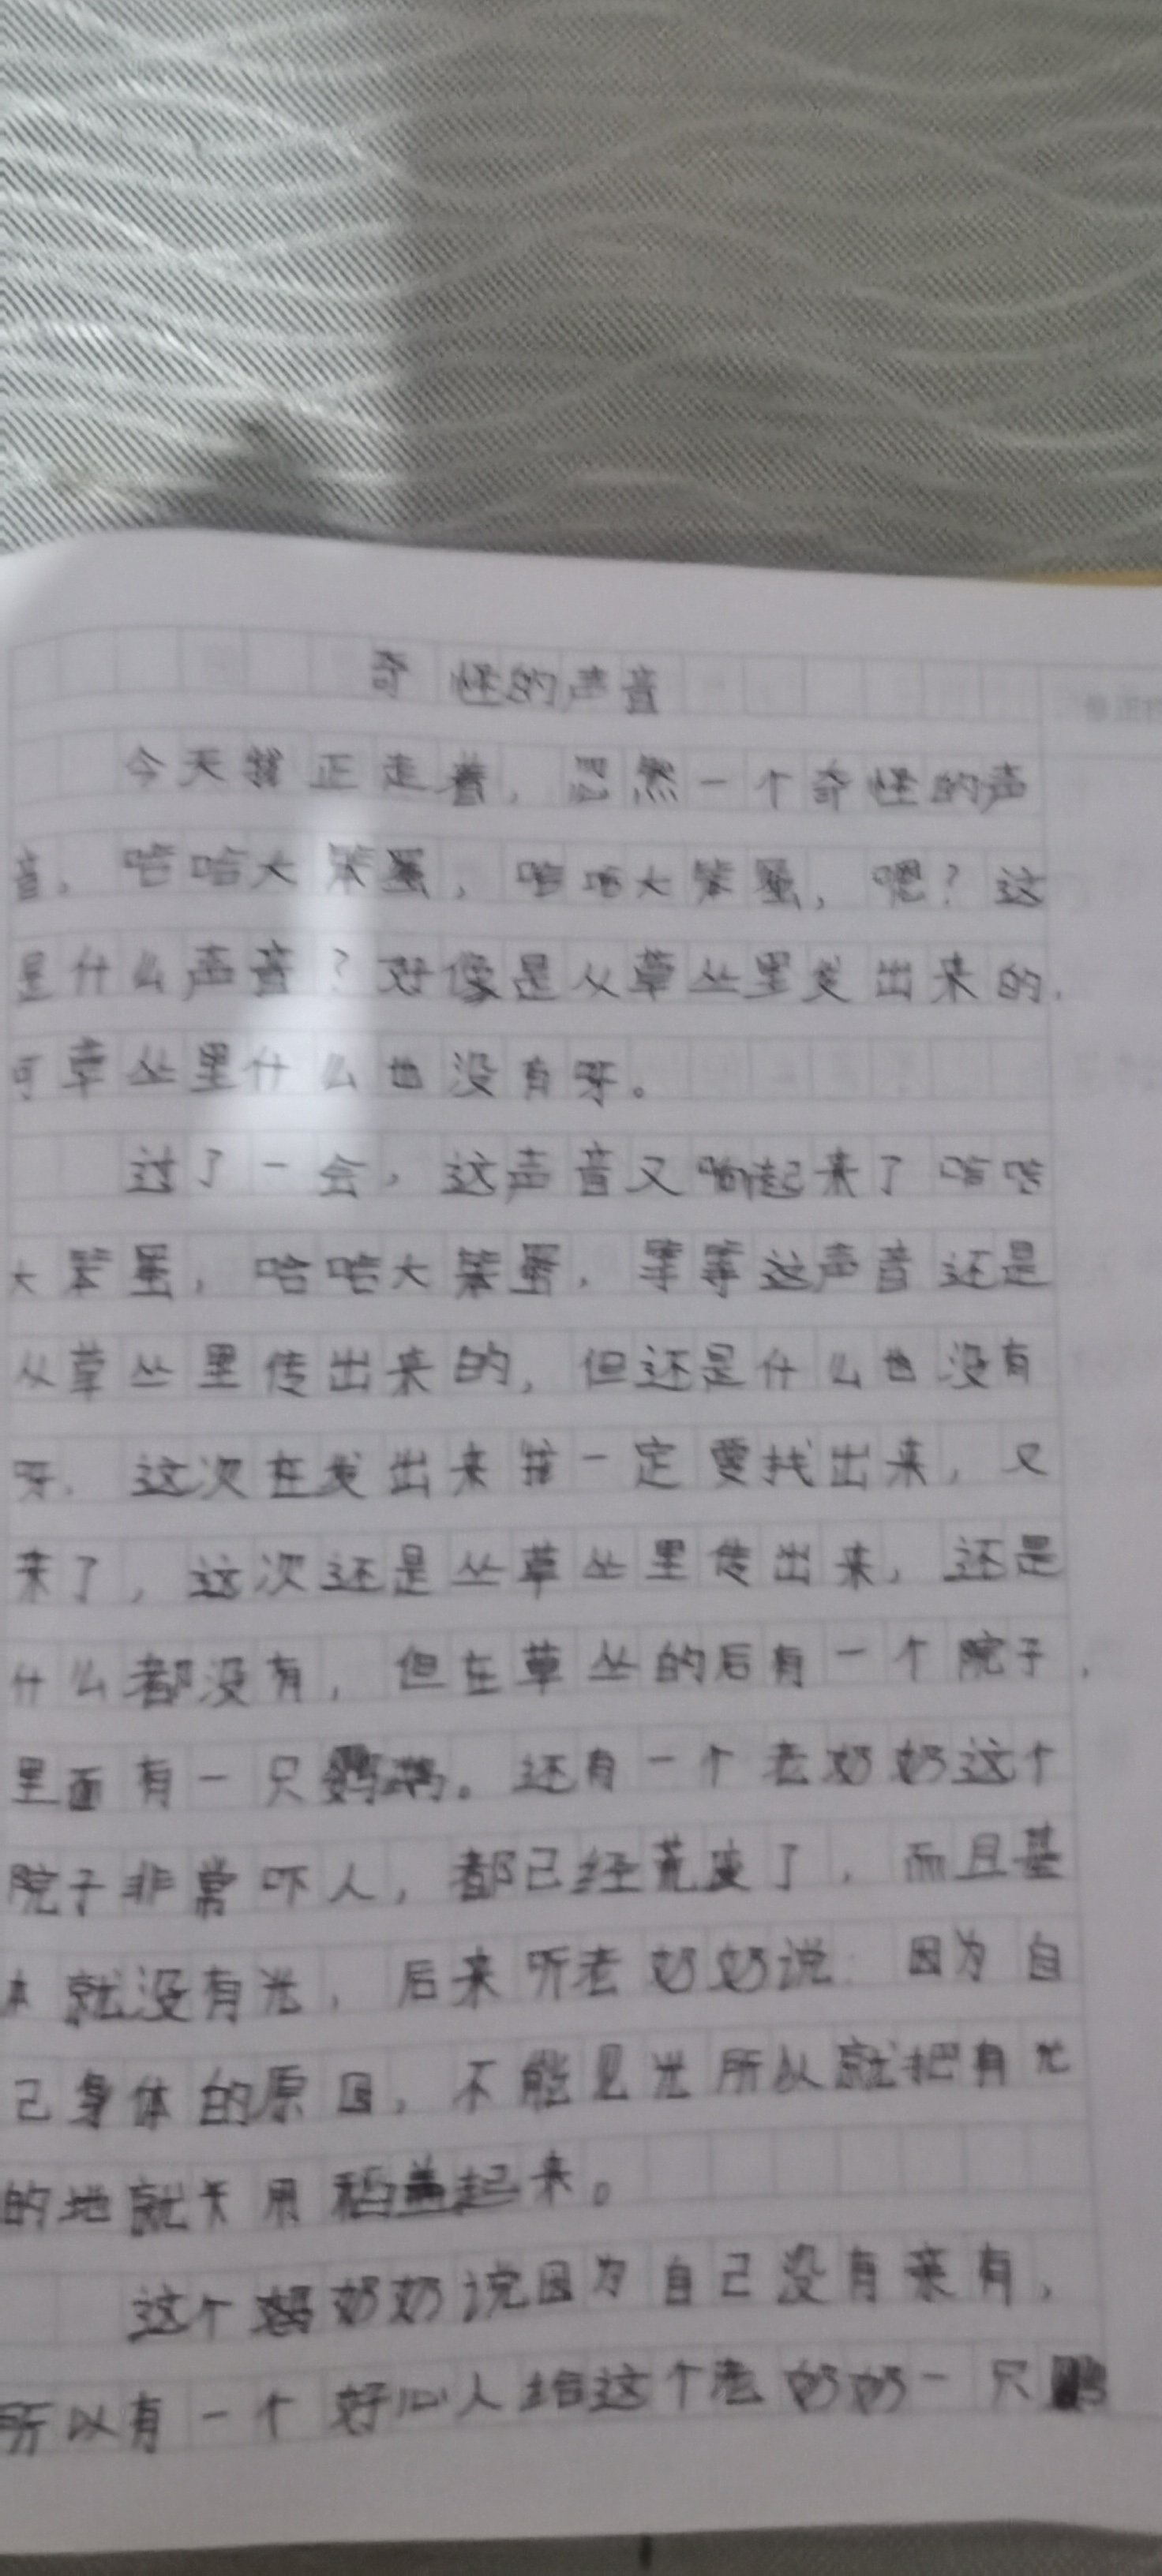 奇怪的声音
今天我正走着，忽然一个奇怪的声
音，哈哈大笨蛋，哈哈大笨蛋，嗯？这
是什么声音？好像是从草丛里发出来的，
可草丛里什么也没有呀。
过了一会，这声音又响起来了哈哈
大笨蛋，哈哈大笨蛋，等等这声音还是
从草丛里传出来的，但还是什么也没有
呀，这次在发出来我一定要找出来，又
来了，这次还是丛草丛里传出来，还是
什么都没有，但在草丛的后有一个院子，
里面有一只鹦鹉。还有一个老奶奶这个
院子非常吓人，都已经荒废了，而且基
本就没有光，后来听老奶奶说：因为自
己身体的原因，不能见光所以就把有光
的地就用稻盖起来。
这个奶奶说因为自己没有亲有，
所以有一个好心人给这个老奶奶一只